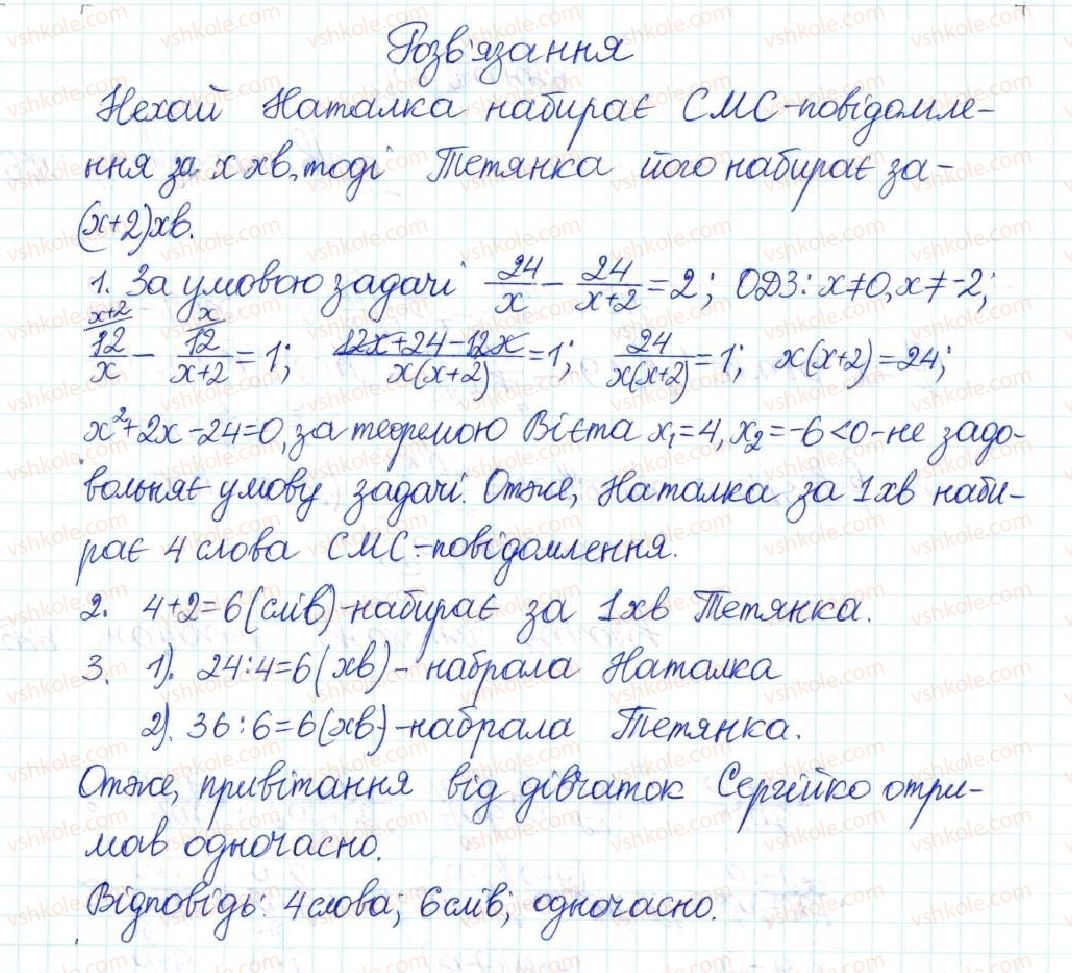 Розв'язання
Нехай Наталка набирає СМС-повідомле-
ння за x хв, тоді Тетянка його набирає за-
(x+2)хв.
1. За умовою задачі 24/x - 24/(x+2) = 2; ОДЗ: x≠0, x≠-2;
x+2 x
12/x - 12/(x+2) = 1; (12x+24-12x)/(x(x+2)) = 1; 24/(x(x+2)) = 1; x(x+2)=24;
x²+2x-24=0, за теоремою Вієта x₁=4, x₂=-6<0-не задо-
вольняє умову задачі. Отже, Наталка за 1хв наби-
рає 4 слова СМС-повідомлення.
2. 4+2=6(слів)-набирає за 1хв Тетянка.
3. 1). 24:4=6(хв)-набрала Наталка
2). 36:6=6(хв)-набрала Тетянка.
Отже, привітання від дівчаток Сергійко отри-
мав одночасно.
Відповідь: 4слова; 6слів; одночасно.
vshkole.com